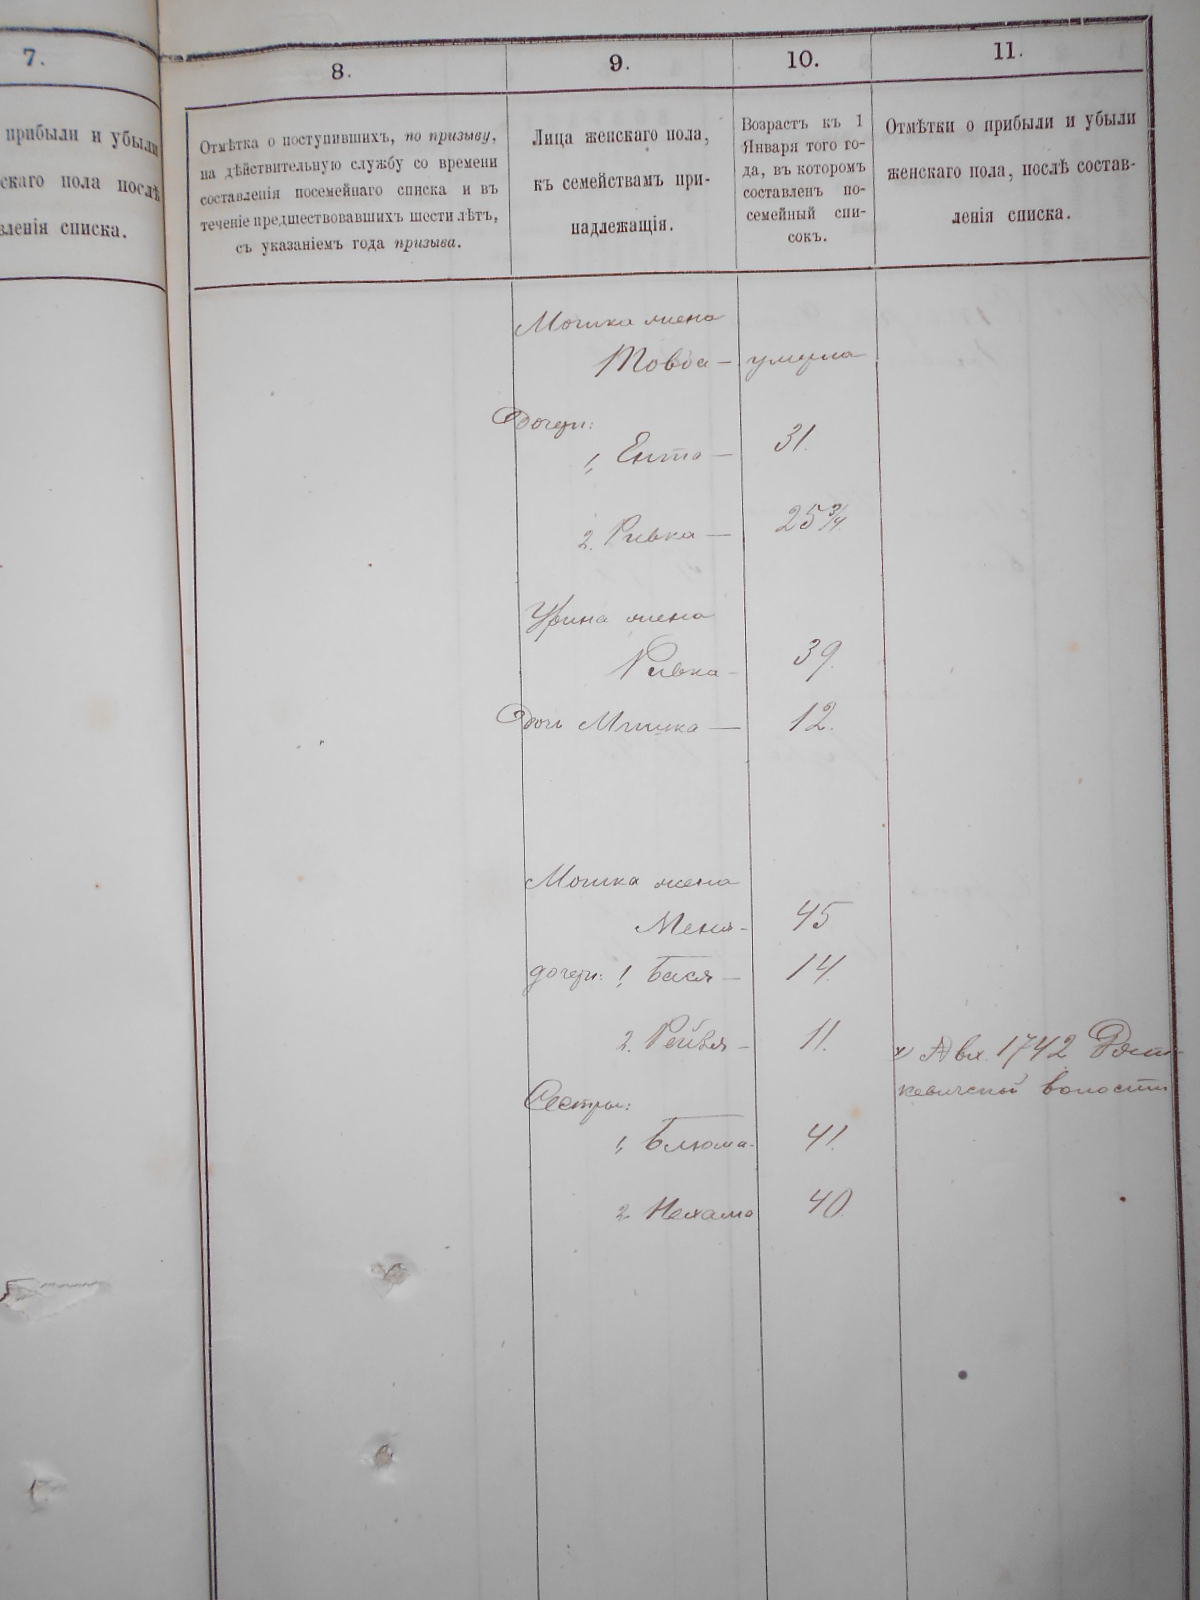 7.
прибыли и убыли
скаго пола послѣ
вленія списка.
8.
Отмѣтка о поступившихъ, по призыву,
на дѣйствительную службу со времени
составленія посемейнаго списка и въ
теченіе предшествовавшихъ шести лѣтъ,
съ указаніемъ года призыва.
9.
Лица женскаго пола,
къ семействамъ при-
надлежащія.
10.
Возрастъ къ 1
Января того го-
да, въ которомъ
составленъ по-
семейный спи-
сокъ.
11.
Отмѣтки о прибыли и убыли
женскаго пола, послѣ состав-
ленія списка.
Мошка жена
Товба — умерла
Дочери:
1, Ента — 31.
2. Ривка — 25 3/4
жена
Ривка - 39.
Дочь — 12.
Мошка жена
Меня - 45
дочери: 1, Бася — 14.
2. Рейзя - 11.
вх. 1742
волости
Сестры:
1, Блюма - 41.
2 Нехама 40.